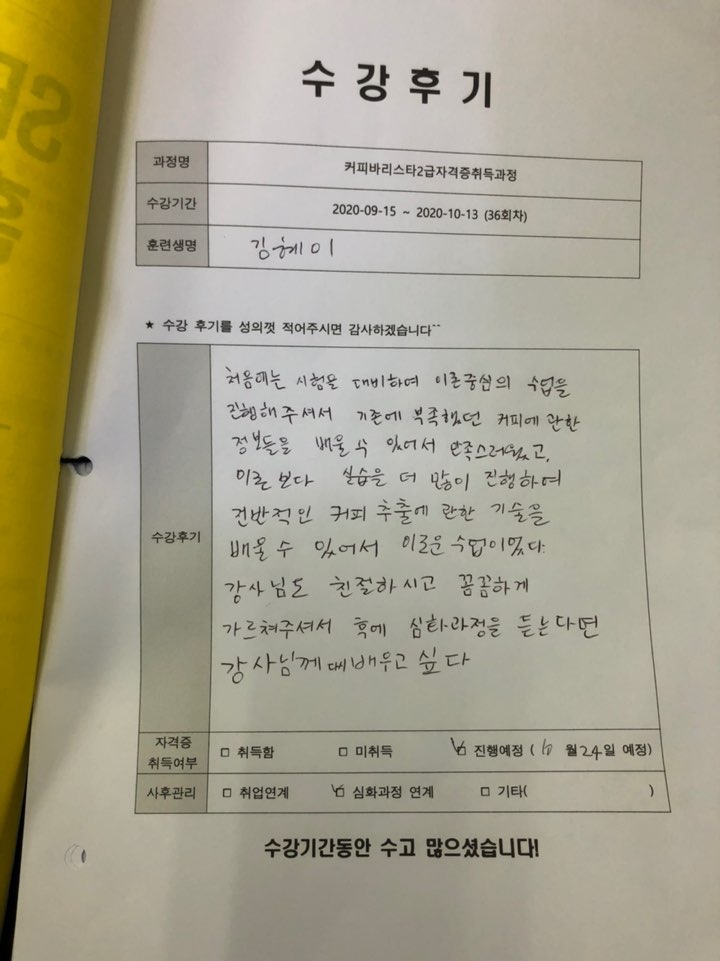 수강후기
과정명
커피바리스타2급자격증취득과정
수강기간
2020-09-15 ~ 2020-10-13 (36회차)
훈련생명
김혜이
★ 수강 후기를 성의껏 적어주시면 감사하겠습니다^^
수강후기
처음에는 시험을 대비하여 이론중심의 수업을
진행해주셔서 기존에 부족했던 커피에 관한
정보들을 배울 수 있어서 만족스러웠고,
이론보다 실습을 더 많이 진행하여
전반적인 커피 추출에 관한 기술을
배울 수 있어서 이로운 수업이었다.
강사님도 친절하시고 꼼꼼하게
가르쳐주셔서 훅에 심화과정을 듣는다면
강사님께 배우고 싶다
자격증
취득여부
□ 취득함 □ 미취득 ☑ 진행예정 ( 10 월 24일 예정)
사후관리
□ 취업연계 ☑ 심화과정 연계 □ 기타( )
수강기간동안 수고 많으셨습니다!